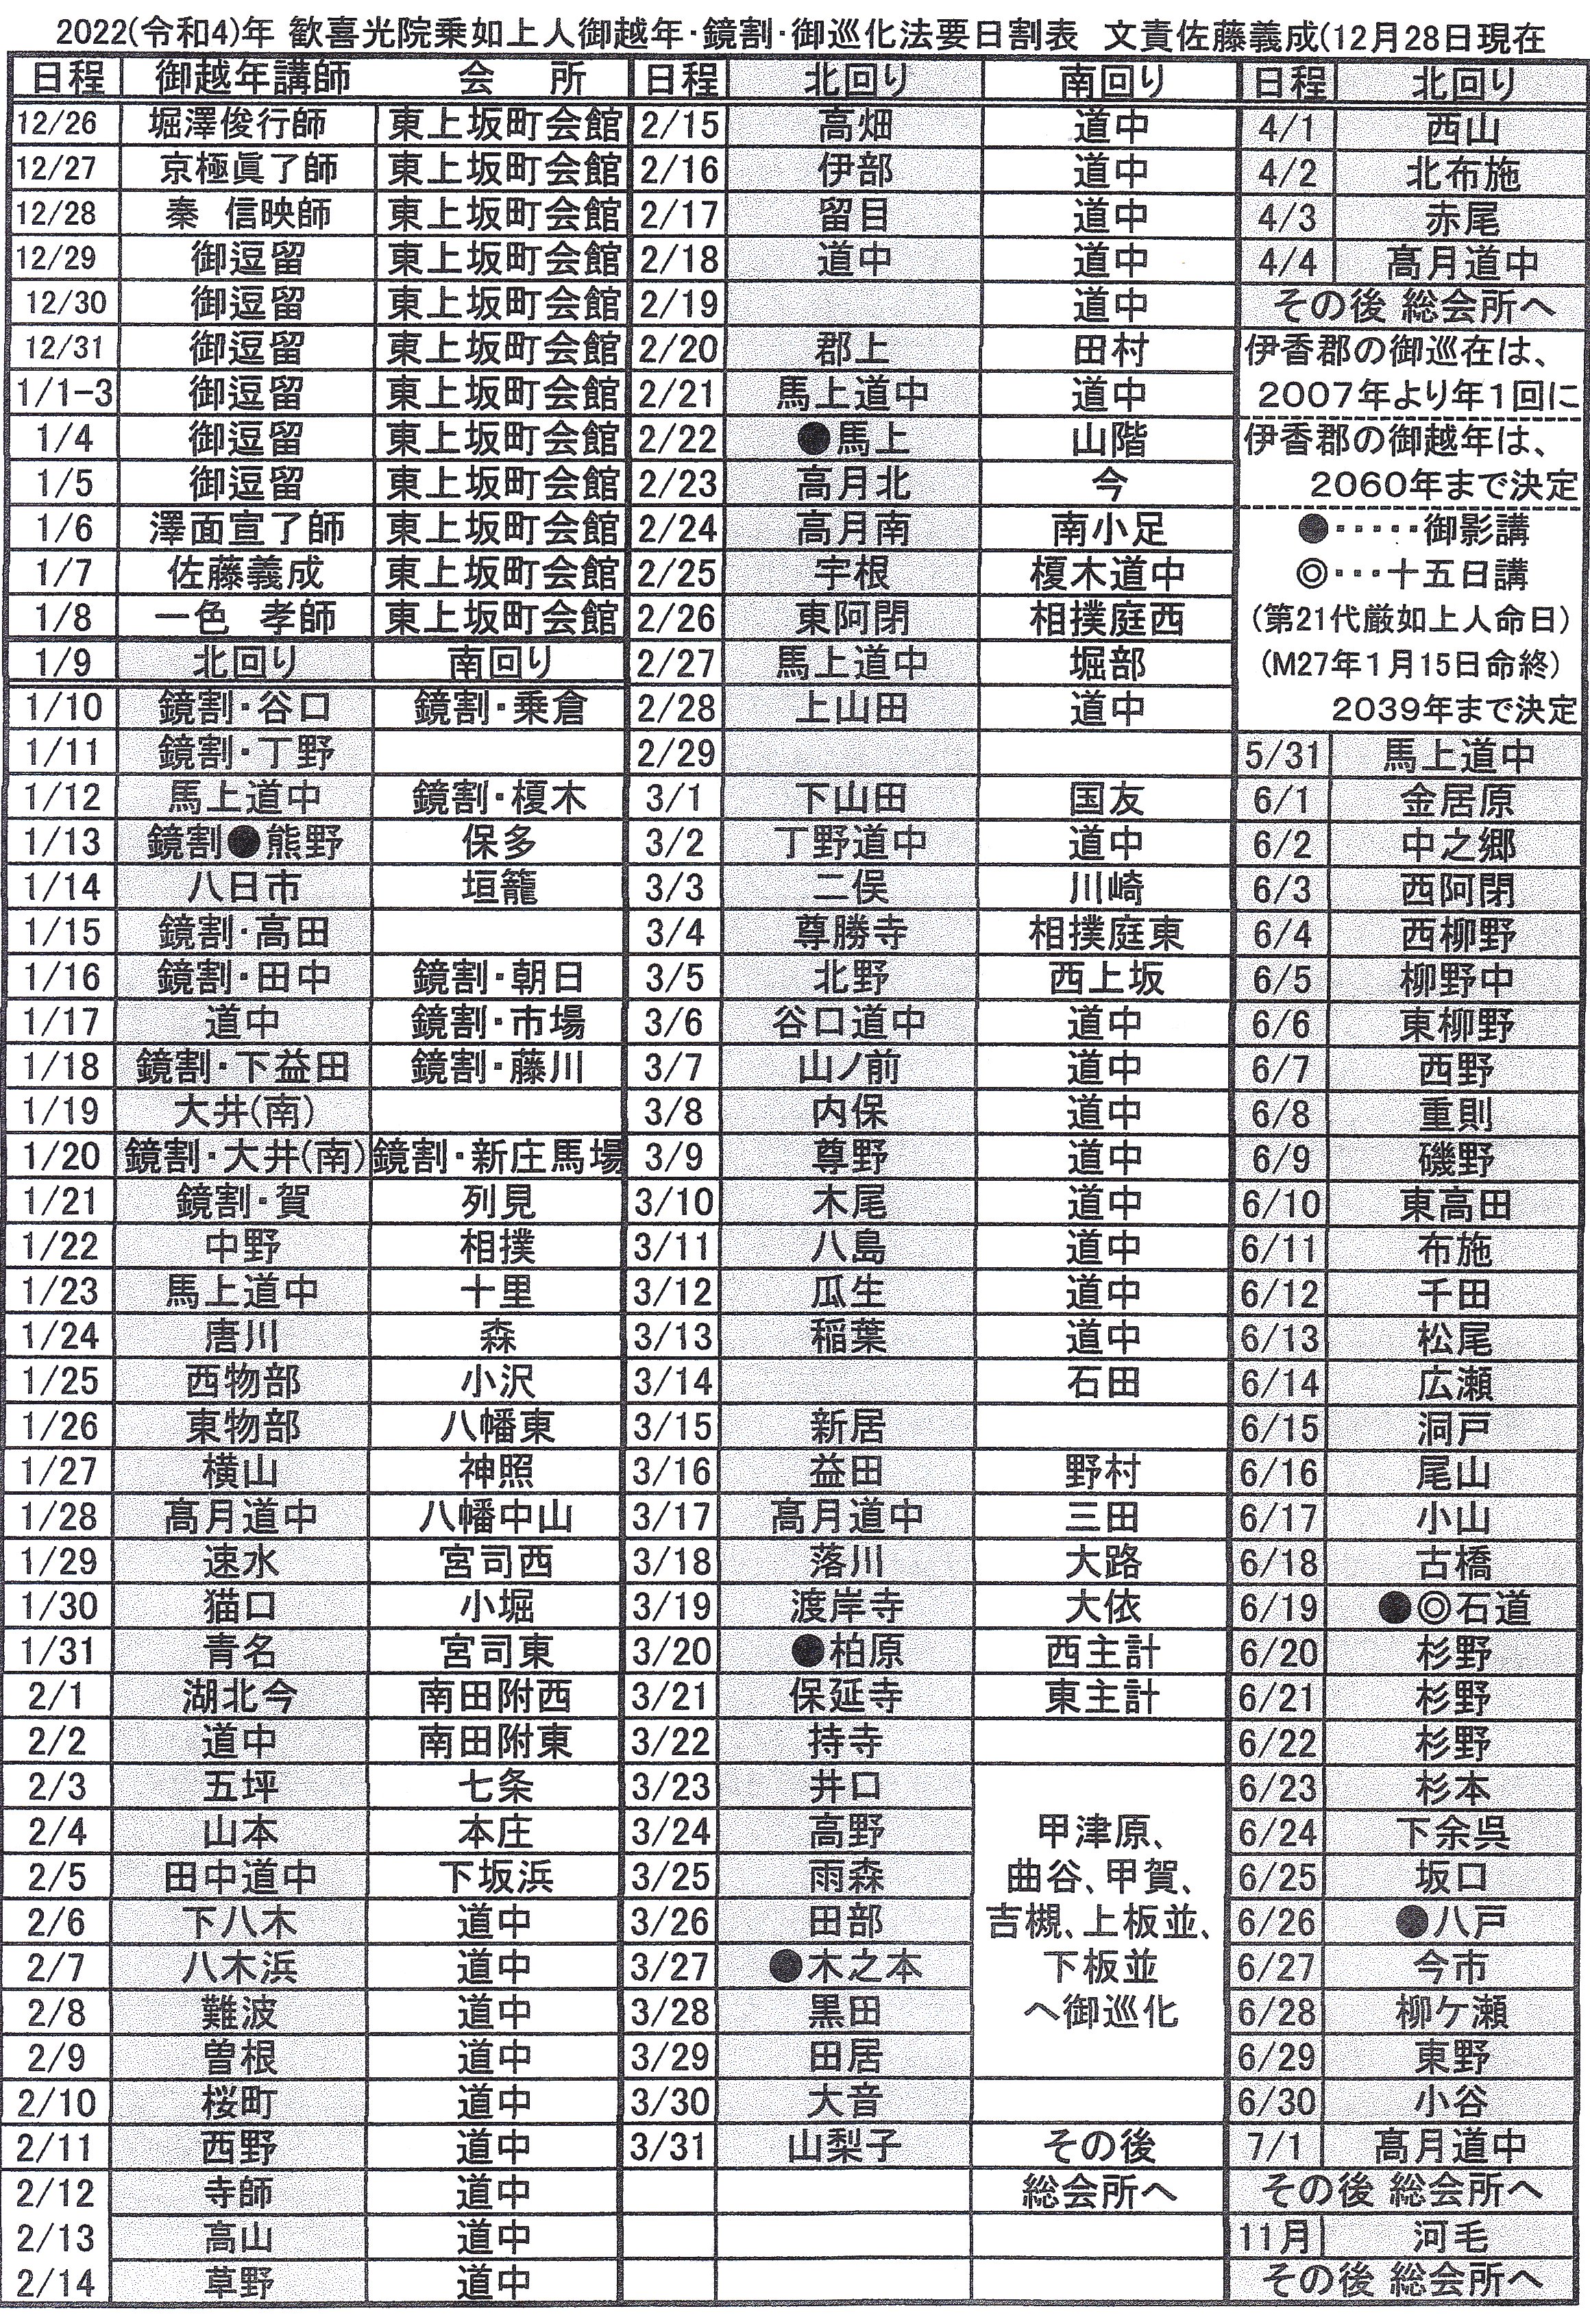 2022(令和4)年 歓喜光院乗如上人御越年・鏡割・御巡化法要日割表 文責佐藤義成(12月28日現在
日程 御越年講師 会 所
12/26 堀澤俊行師 東上坂町会館
12/27 京極眞了師 東上坂町会館
12/28 秦 信映師 東上坂町会館
12/29 御逗留 東上坂町会館
12/30 御逗留 東上坂町会館
12/31 御逗留 東上坂町会館
1/1-3 御逗留 東上坂町会館
1/4 御逗留 東上坂町会館
1/5 御逗留 東上坂町会館
1/6 澤面宣了師 東上坂町会館
1/7 佐藤義成 東上坂町会館
1/8 一色 孝師 東上坂町会館
1/9 北回り 南回り
1/10 鏡割・谷口 鏡割・乗倉
1/11 鏡割・丁野
1/12 馬上道中 鏡割・榎木
1/13 鏡割●熊野 保多
1/14 八日市 垣籠
1/15 鏡割・高田
1/16 鏡割・田中 鏡割・朝日
1/17 道中 鏡割・市場
1/18 鏡割・下益田 鏡割・藤川
1/19 大井(南)
1/20 鏡割・大井(南) 鏡割・新庄馬場
1/21 鏡割・賀 列見
1/22 中野 相撲
1/23 馬上道中 十里
1/24 唐川 森
1/25 西物部 小沢
1/26 東物部 八幡東
1/27 横山 神照
1/28 髙月道中 八幡中山
1/29 速水 宮司西
1/30 猫口 小堀
1/31 青名 宮司東
2/1 湖北今 南田附西
2/2 道中 南田附東
2/3 五坪 七条
2/4 山本 本庄
2/5 田中道中 下坂浜
2/6 下八木 道中
2/7 八木浜 道中
2/8 難波 道中
2/9 曽根 道中
2/10 桜町 道中
2/11 西野 道中
2/12 寺師 道中
2/13 高山 道中
2/14 草野 道中
日程 北回り 南回り
2/15 高畑 道中
2/16 伊部 道中
2/17 留目 道中
2/18 道中 道中
2/19 道中
2/20 郡上 田村
2/21 馬上道中 道中
2/22 ●馬上 山階
2/23 高月北 今
2/24 高月南 南小足
2/25 宇根 榎木道中
2/26 東阿閉 相撲庭西
2/27 馬上道中 堀部
2/28 上山田 道中
2/29
3/1 下山田 国友
3/2 丁野道中 道中
3/3 二俣 川崎
3/4 尊勝寺 相撲庭東
3/5 北野 西上坂
3/6 谷口道中 道中
3/7 山ノ前 道中
3/8 内保 道中
3/9 尊野 道中
3/10 木尾 道中
3/11 八島 道中
3/12 瓜生 道中
3/13 稲葉 道中
3/14 石田
3/15 新居
3/16 益田 野村
3/17 髙月道中 三田
3/18 落川 大路
3/19 渡岸寺 大依
3/20 ●柏原 西主計
3/21 保延寺 東主計
3/22 持寺
3/23 井口
3/24 高野
3/25 雨森
3/26 田部
3/27 ●木之本
3/28 黒田
3/29 田居
3/30 大音
3/31 山梨子 その後
総会所へ
甲津原、
曲谷、甲賀、
吉槻、上板並、
下板並
へ御巡化
日程 北回り
4/1 西山
4/2 北布施
4/3 赤尾
4/4 髙月道中
その後 総会所へ
伊香郡の御巡在は、
2007年より年1回に
伊香郡の御越年は、
2060年まで決定
●・・・・・御影講
◎・・・十五日講
(第21代厳如上人命日)
(M27年1月15日命終)
2039年まで決定
5/31 馬上道中
6/1 金居原
6/2 中之郷
6/3 西阿閉
6/4 西柳野
6/5 柳野中
6/6 東柳野
6/7 西野
6/8 重則
6/9 磯野
6/10 東高田
6/11 布施
6/12 千田
6/13 松尾
6/14 広瀬
6/15 洞戸
6/16 尾山
6/17 小山
6/18 古橋
6/19 ●◎石道
6/20 杉野
6/21 杉野
6/22 杉野
6/23 杉本
6/24 下余呉
6/25 坂口
6/26 ●八戸
6/27 今市
6/28 柳ケ瀬
6/29 東野
6/30 小谷
7/1 髙月道中
その後 総会所へ
11月 河毛
その後 総会所へ